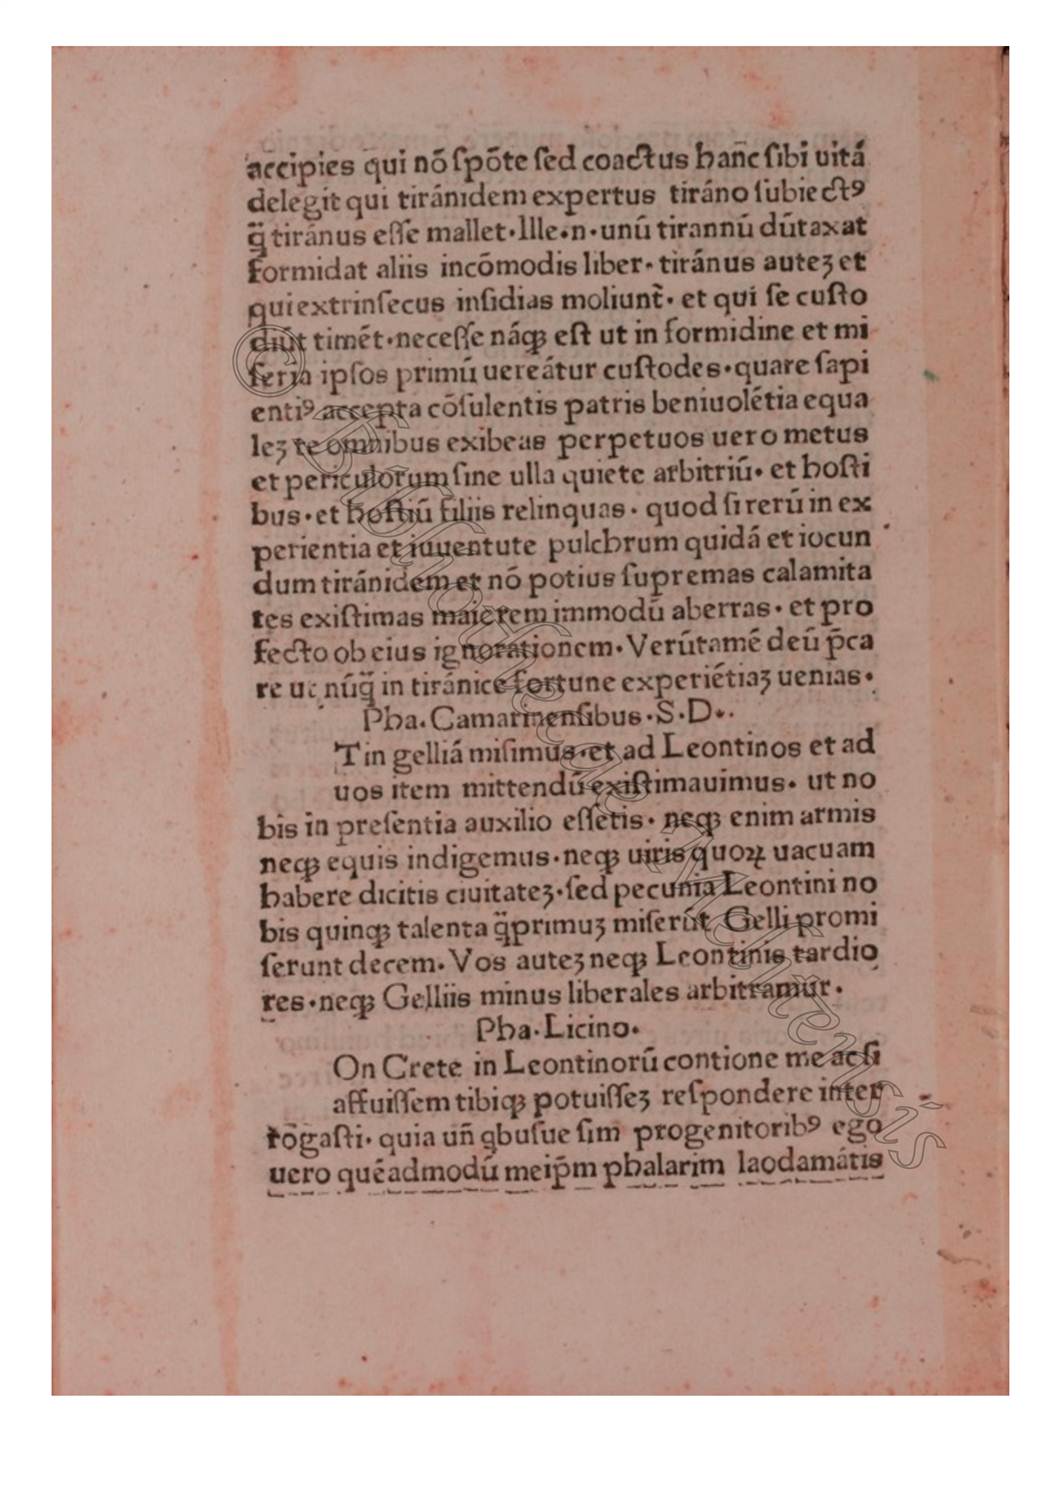 accipies qui nō ſpōte ſed coactus hanc ſibi uitā
delegit qui tiránidem expertus tiráno ſubiectꝰ
q̄ tiránus eſſe mallet·Ille·n·unū tirannū dūtaxat
formidat aliis incōmodis liber·tiránus auteꝫ et
qui extrinſecus inſidias moliunt᷑· et qui ſe cuſto
diūt timēt·neceſſe nāqꝫ eſt ut in formidine et mi
ſeria ipſos primū uereātur cuſtodes·quare ſapi
entiꝰ accepta cōſulentis patris beniuolētia equa
leꝫ te omnibus exibeas perpetuos uero metus
et periculorum ſine ulla quiete arbitriū· et hoſti
bus·et hoſtiū filiis relinquas· quod ſi rerū in ex
perientia et iuuentute pulchrum quidā et iocun
dum tiránidem et nō potius ſupremas calamita
tes exiſtimas maiorem immodū aberras· et pro
fecto ob eius ignorationem·Verūtamē deū p̄ca
re ut nūq̄ in tiránice fortune experiētiaꝫ uenias·
Pha·Camarinenſibus·S·D·
T in gelliā miſimus·et ad Leontinos et ad
uos item mittendū exiſtimauimus· ut no
bis in preſentia auxilio eſſetis· neqꝫ enim armis
neqꝫ equis indigemus·neqꝫ uiris quoꝝ uacuam
habere dicitis ciuitateꝫ·ſed pecunia Leontini no
bis quinqꝫ talenta q̄primuꝫ miſerūt Gelli promi
ſerunt decem· Vos auteꝫ neqꝫ Leontinis tardio
res·neqꝫ Gelliis minus liberales arbitramur·
Pha·Licino·
On Crete in Leontinorū contione me ac ſi
affuiſſem tibiqꝫ potuiſſeꝫ reſpondere inter
rogaſti· quia un̄ qbuſue ſim progenitoribꝰ ego
uero quēadmodū meip̄m phalarim laodamātis
© Biblioteca Nehrensis